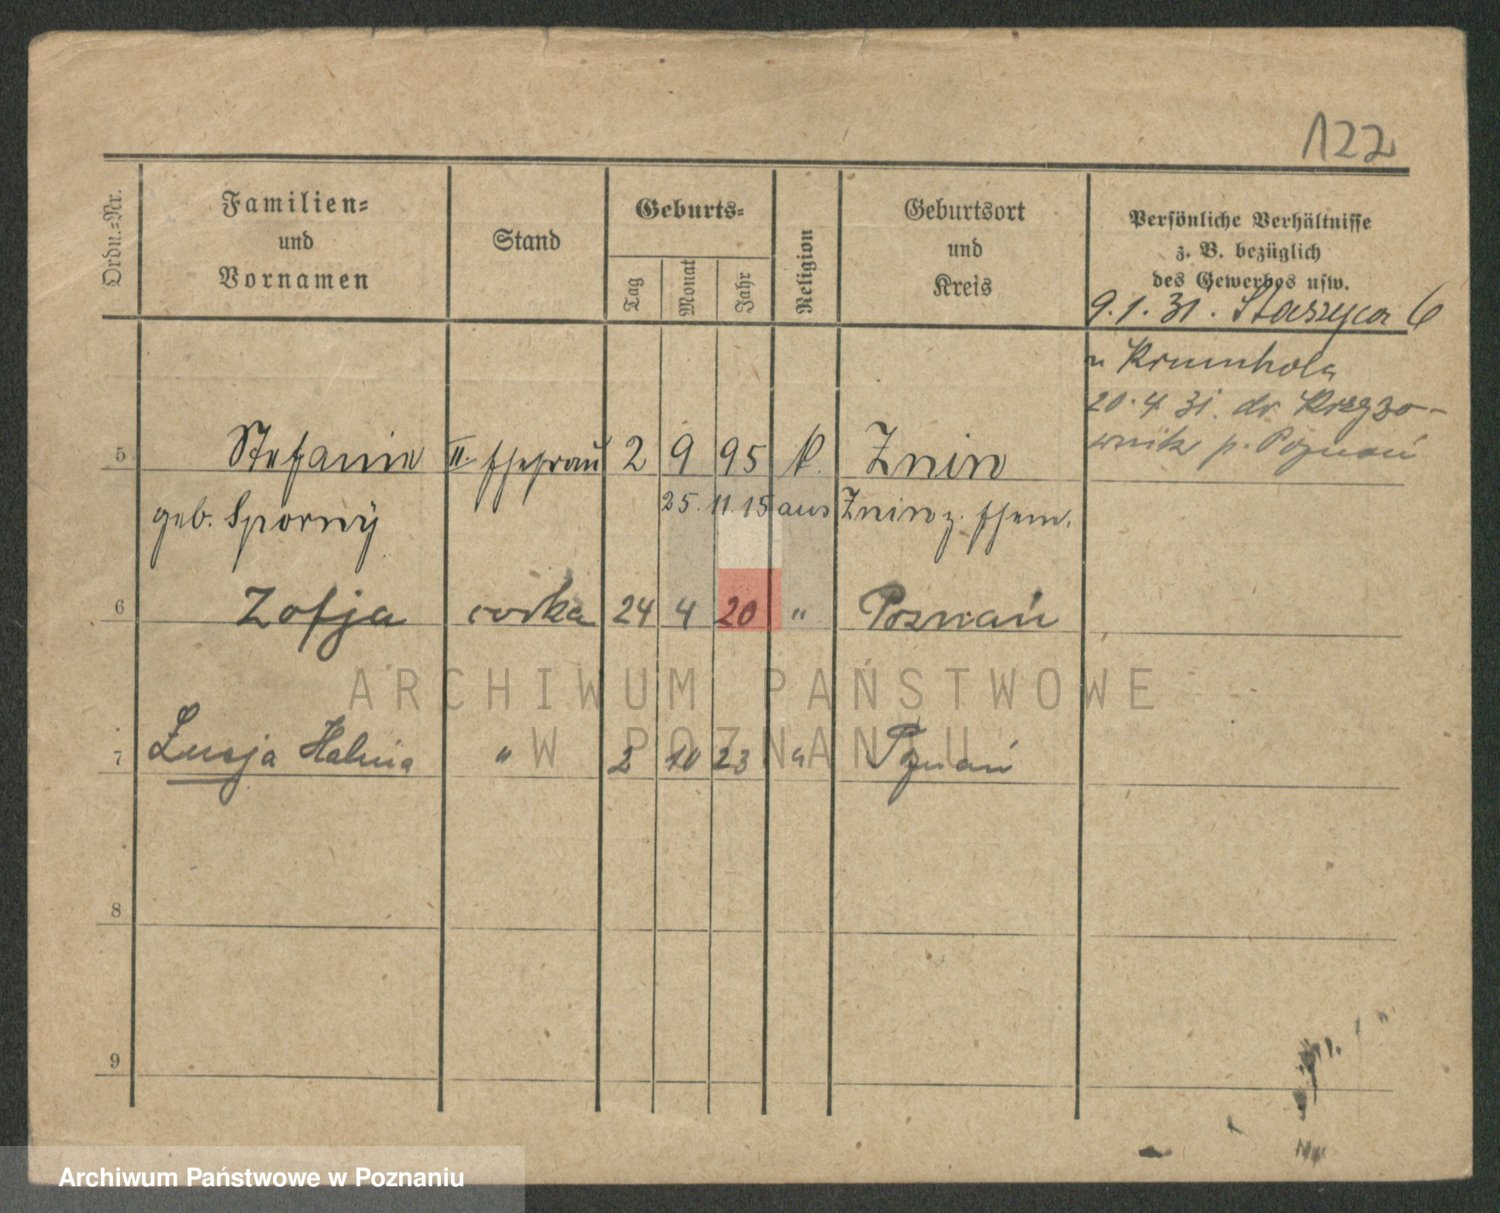 122
Ordn.=Nr.
Familien=
und
Vornamen
Stand
Geburts=
Tag
Monat
Jahr
Religion
Geburtsort
und
Kreis
Persönliche Verhältnisse
z. B. bezüglich
des Gewerbes usw.
9.1.31. Staszyca 6
u Krumhola
20.4.31. do Krzyżo-
wnik p. Poznań
5 Stefanie II. Ehefrau 2 9 95 k. Znin
geb. Sporny 25. 11. 15 aus Znin z. Ehem.
6 Zofja corka 24 4 20 " Poznań
ARCHIWUM PAŃSTWOWE
W POZNANIU
7 Lucja Halina " 2 10 23 " Poznań
8
9
Archiwum Państwowe w Poznaniu